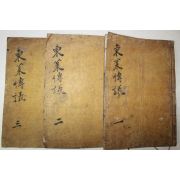 東萊博議 一
東萊博議 二
東萊博議 三